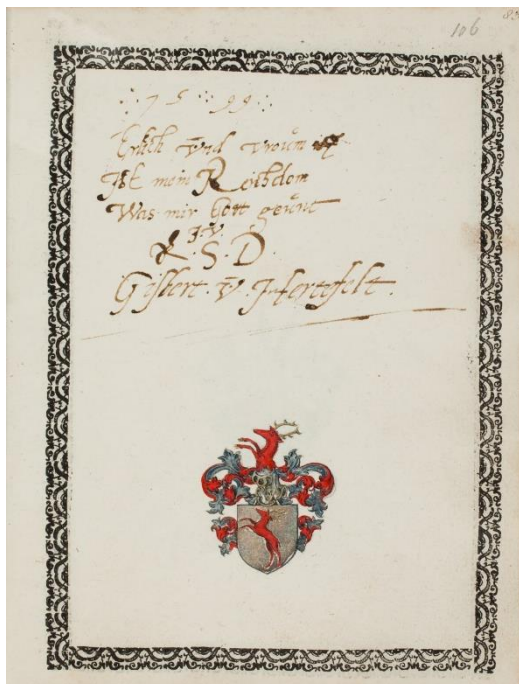 106
85
∴ 1 5 ∵ 99 ∴
Erlich vnd vroům
Ist mein Reichdom
Was mir Gott geůnt
J. V.
R. S. D
Gisbert . v . Hertefelt .